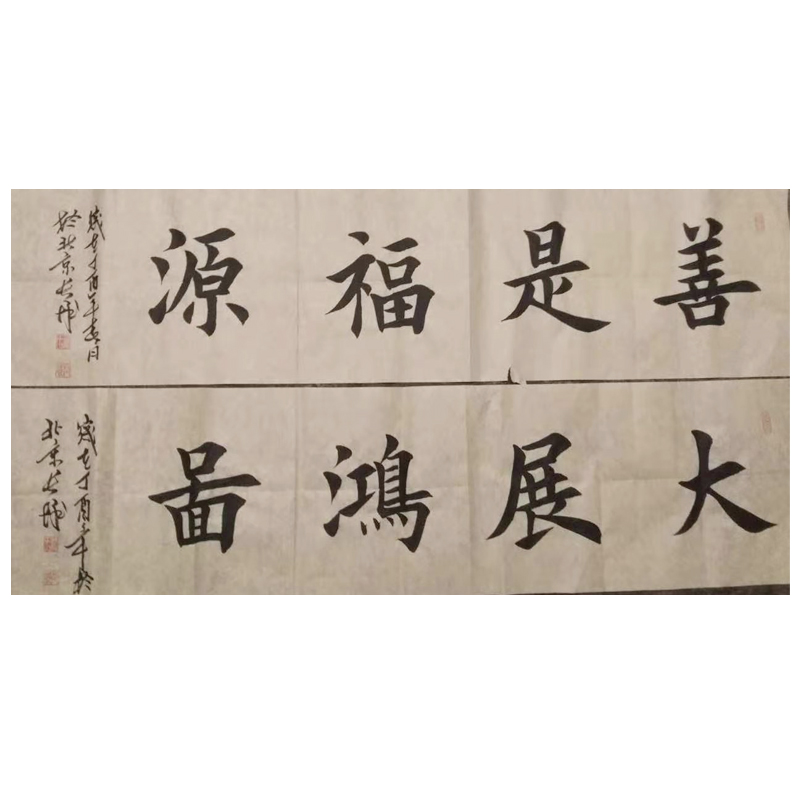 善是福源
歲在丁酉年
於北京長城
大展鴻啚
歲在丁酉年於
北京長城